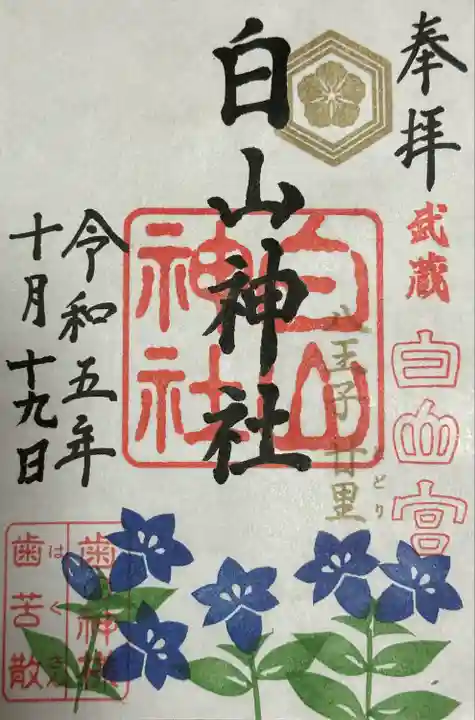 奉拝
武蔵
白山宮
八王子 廿里
とどり
白山神社
白山
神社
令和五年
十月十九日
歯神様
歯苦散
はくさん